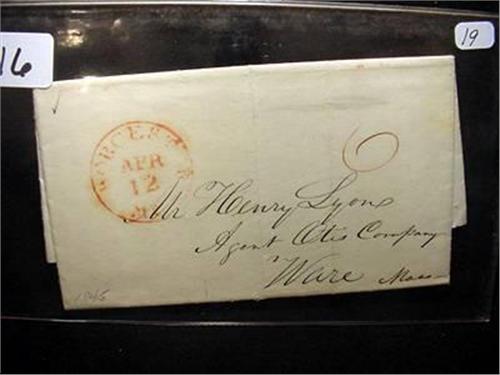 16
19
WORCESTER
APR
12
6
Mr Henry Lyon
Agent Otis Company
Ware Mass
1845